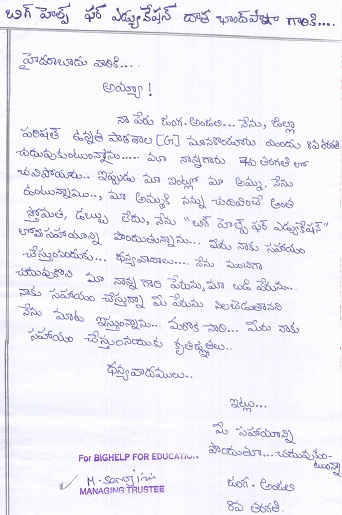 బిగ్ హెల్ప్ ఫర్ ఎడ్యుకేషన్ దాత చాంద్‌పాషా గారికి....
హైదరాబాదు వారికి...
అయ్యా!
నా పేరు జంగ. అంజలి... నేను, జిల్లా
పరిషత్ ఉన్నత పాఠశాల [G] మానకొండూరు యందు 8వ తరగతి
చదువుకుంటున్నాను..... మా నాన్నగారు 4వ తరగతి లో
చనిపోయారు.. ఇప్పుడు మా ఇంట్లో మా అమ్మ, నేను
ఉంటున్నాము.., మా అమ్మకి నన్ను చదివించే అంత
స్తోమత, డబ్బు లేదు, నేను "బిగ్ హెల్ప్ ఫర్ ఎడ్యుకేషన్"
లో సహాయాన్ని పొందుతున్నాను... మీరు నాకు సహాయం
చేస్తున్నందుకు... ధన్యవాదాలు.... నేను మంచిగా
చదువుకొని మా నాన్న గారి పేరును, మా బడి పేరును...
నాకు సహాయం చేస్తున్నా మీ పేరును నిలబెడుతానని
నేను మాట ఇస్తున్నాను... మరొక సారి... మీరు నాకు
సహాయం చేస్తున్నందుకు కృతజ్ఞతలు..
ధన్యవాదములు..
ఇట్లు...
మీ సహాయాన్ని
పొందుతూ... చదువుకుంటున్నా
జంగ. అంజలి
8వ తరగతి.
For BIGHELP FOR EDUCATION
M. Sarojini
MANAGING TRUSTEE